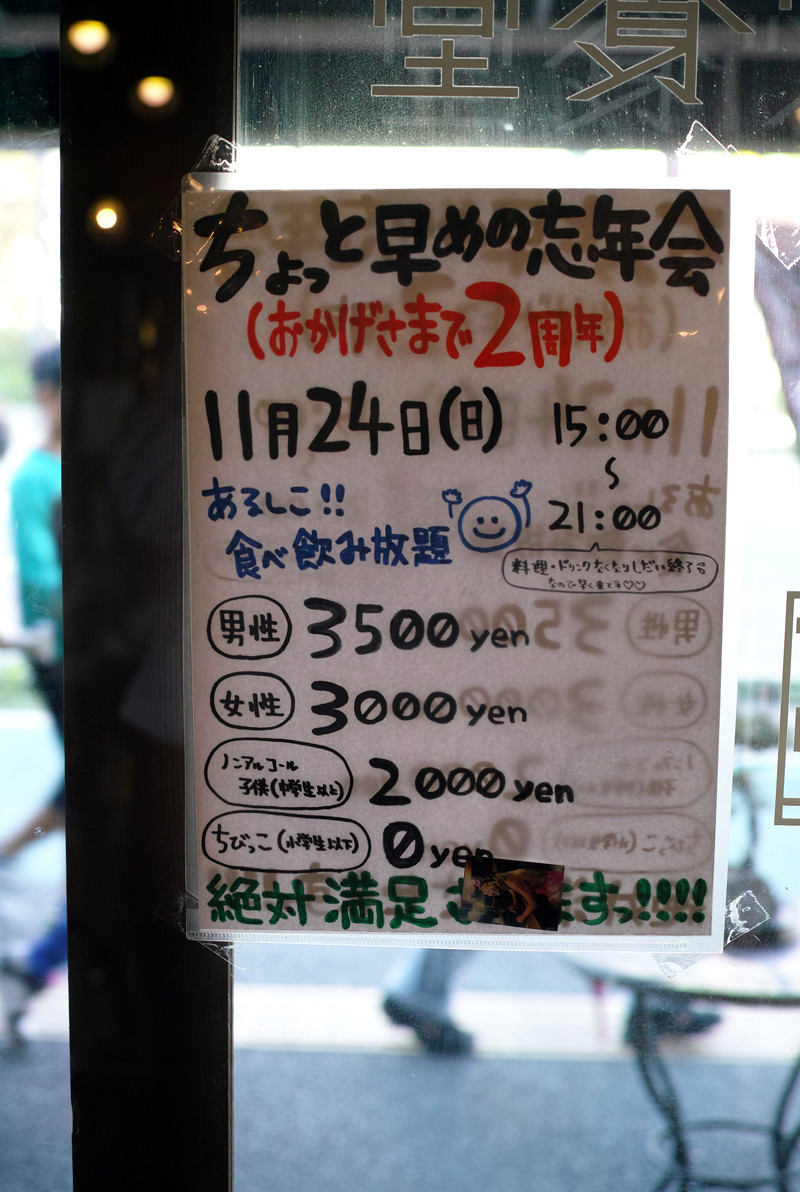 ちょっと早めの忘年会
(おかげさまで2周年)
11月24日(日) 15:00
〜
21:00
あるしこ!!
食べ飲み放題
料理・ドリンクなくなりしだい終了
なので早く来てネ♡♡
男性 3500yen
女性 3000yen
ノンアルコール
子供(中学生以上) 2000yen
ちびっこ(小学生以下) 0yen
絶対満足さ ますっ!!!!